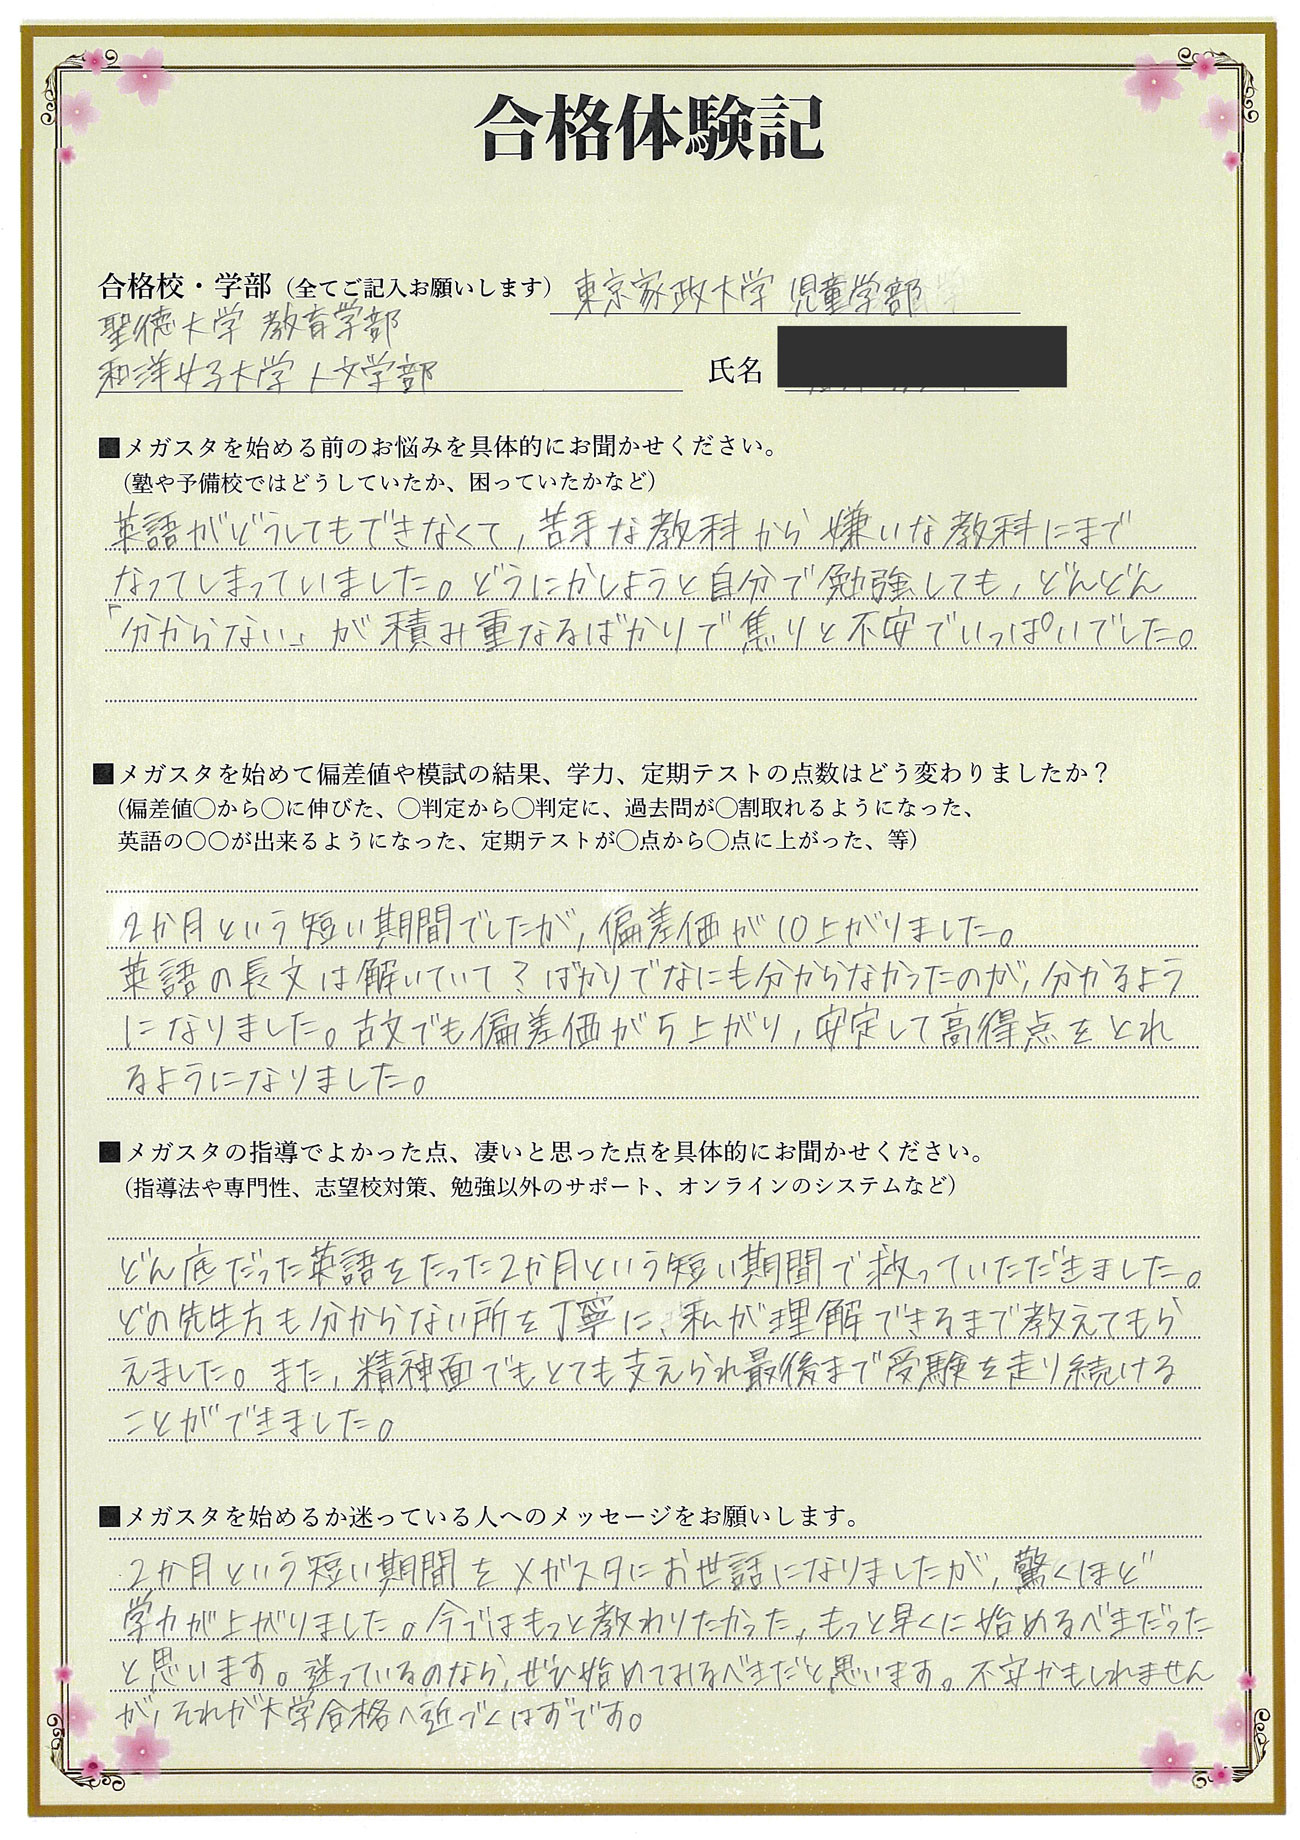 合格体験記
合格校・学部（全てご記入お願いします） 東京家政大学 児童学部
聖徳大学 教育学部
和洋女子大学 人文学部 氏名
■メガスタを始める前のお悩みを具体的にお聞かせください。
（塾や予備校ではどうしていたか、困っていたかなど）
英語がどうしてもできなくて，苦手な教科から嫌いな教科にまで
なってしまっていました。どうにかしようと自分で勉強しても，どんどん
「分からない」が積み重なるばかりで焦りと不安でいっぱいでした。
■メガスタを始めて偏差値や模試の結果、学力、定期テストの点数はどう変わりましたか？
（偏差値〇から〇に伸びた、〇判定から〇判定に、過去問が〇割取れるようになった、
英語の〇〇が出来るようになった、定期テストが〇点から〇点に上がった、等）
2か月という短い期間でしたが，偏差価が10上がりました。
英語の長文は解いていて？ばかりでなにも分からなかったのが，分かるよう
になりました。古文でも偏差価が5上がり，安定して高得点をとれ
るようになりました。
■メガスタの指導でよかった点、凄いと思った点を具体的にお聞かせください。
（指導法や専門性、志望校対策、勉強以外のサポート、オンラインのシステムなど）
どん底だった英語をたった2か月という短い期間で救っていただきました。
どの先生方も分からない所を丁寧に，私が理解できるまで教えてもら
えました。また，精神面でもとても支えられ最後まで受験を走り続ける
ことができました。
■メガスタを始めるか迷っている人へのメッセージをお願いします。
2か月という短い期間をメガスタにお世話になりましたが，驚くほど
学力が上がりました。今ではもっと教わりたかった，もっと早くに始めるべきだった
と思います。迷っているのなら，ぜひ始めておるべきだと思います。不安かもしれません
が，それが大学合格へ近づくはずです。